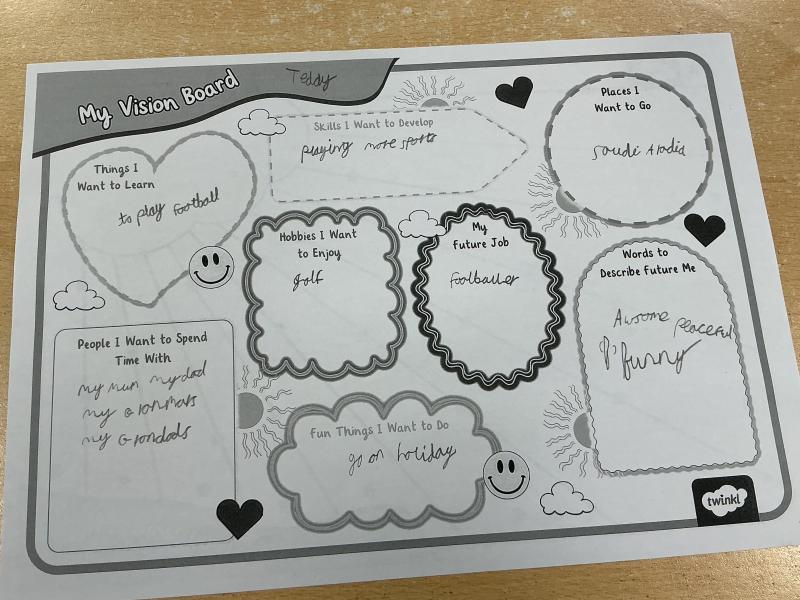 My Vision Board
Teddy
Things I
Want to Learn
to play football
Skills I Want to Develop
playing more sports
Places I
Want to Go
Soudi Arabia
Hobbies I Want
to Enjoy
golf
My
Future Job
footballer
Words to
Describe Future Me
Awsome peaceful
funny
People I Want to Spend
Time With
my mum my dad
my Granmars
my Grandads
Fun Things I Want to Do
go on holiday
twinkl